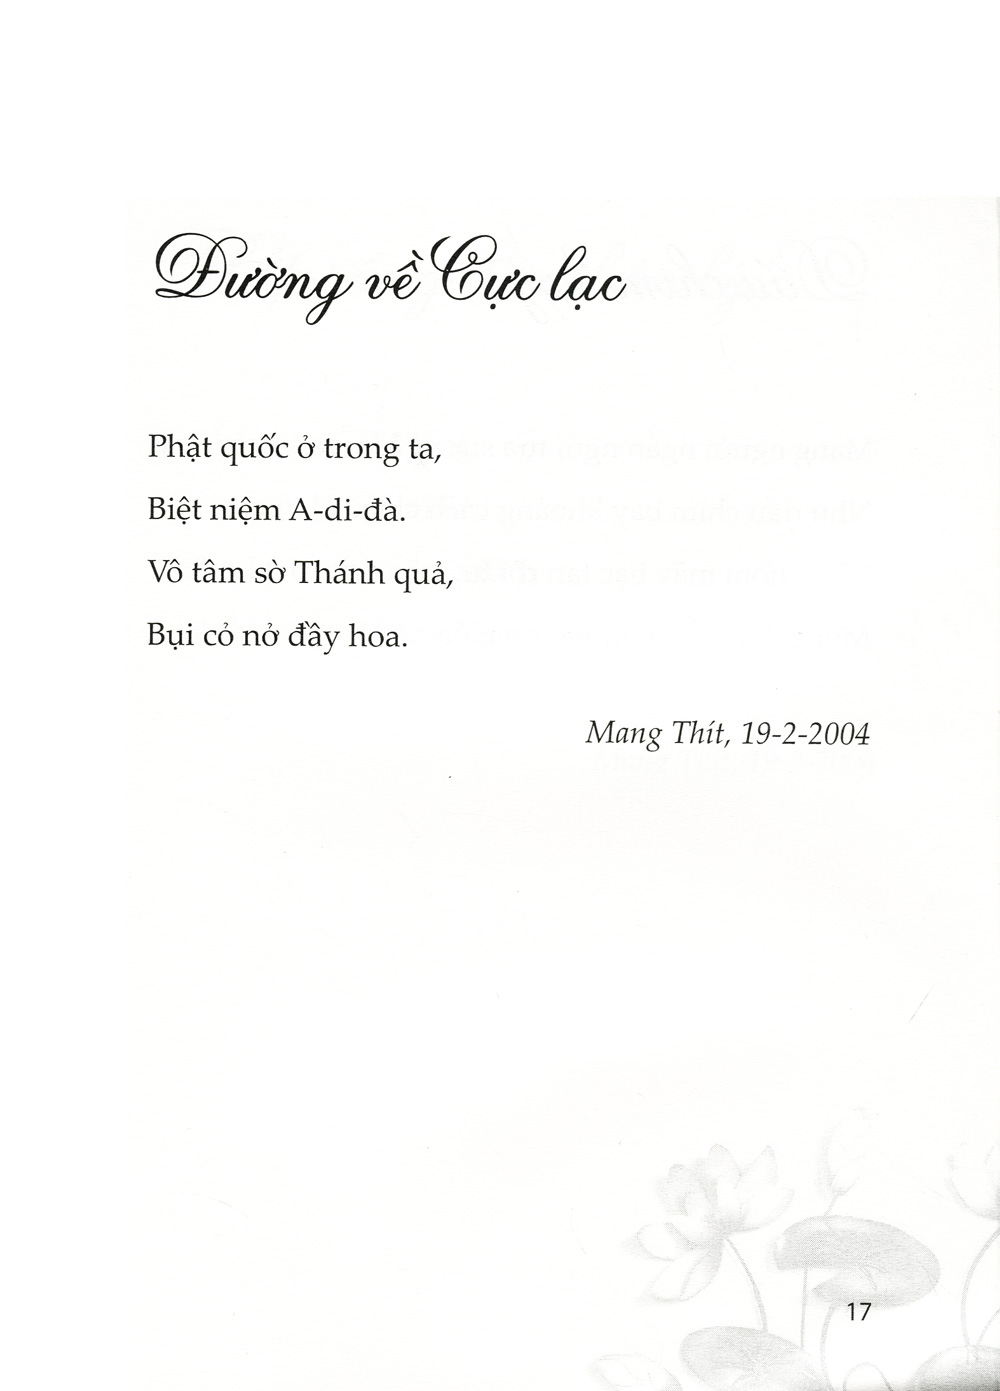 Đường về Cực lạc
Phật quốc ở trong ta,
Biệt niệm A-di-đà.
Vô tâm sờ Thánh quả,
Bụi cỏ nở đầy hoa.
Mang Thít, 19-2-2004
17